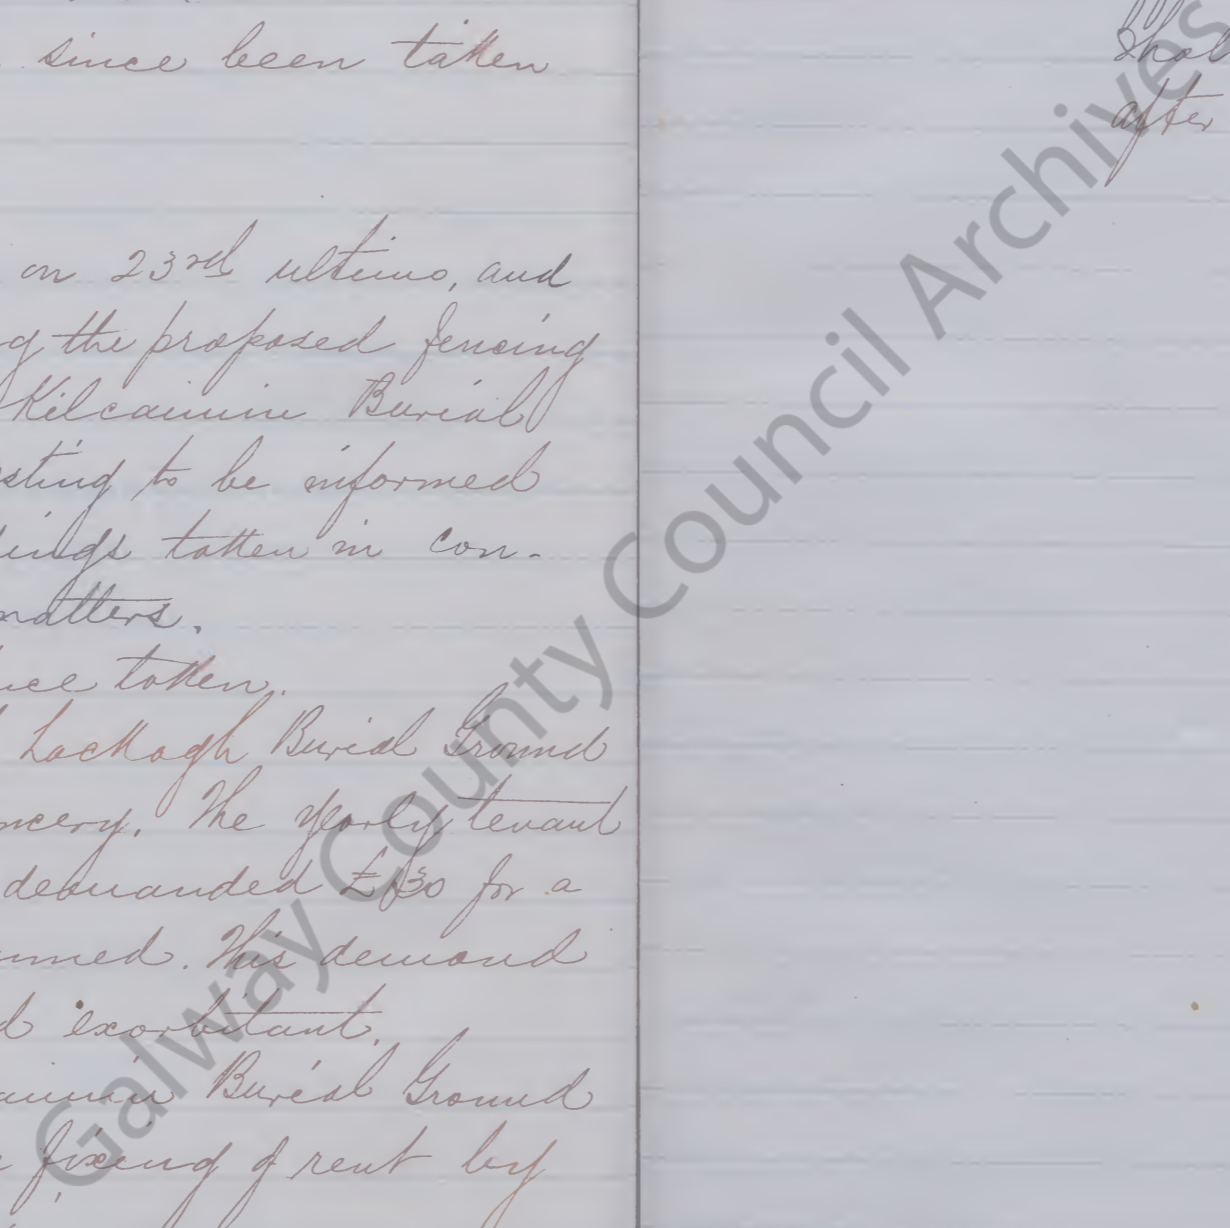 since been taken
on 23rd ultimo, and
g the proposed fencing
Kilcaimin Burial
sting to be informed
dings taken in con-
matters.
nce taken.
Lackagh Burial Ground
ncery. The yearly tenant
demanded £130 for a
med. This demand
d exorbitant.
aimin Burial Ground
fixing of rent by
Shal
after
Galway County Council Archives